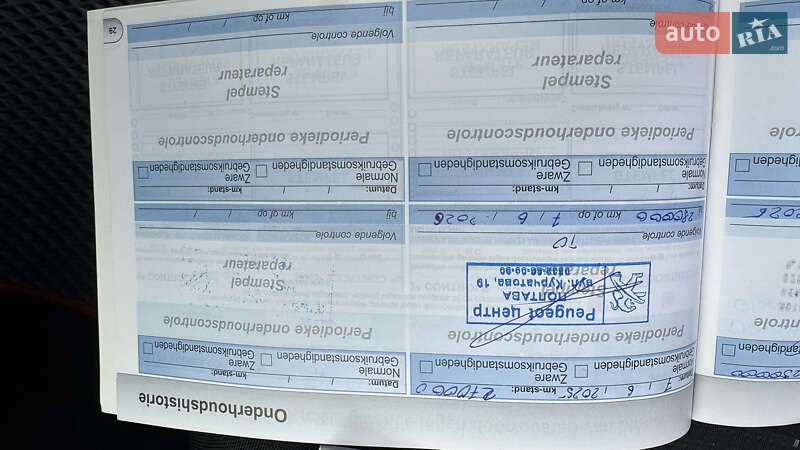 auto RIA.com
Onderhoudshistorie
Datum: 7 / 6 / 2025 km-stand: 270000
Normale
Zware
Gebruiksomstandigheden
Periodieke onderhoudscontrole
Stempel
reparateur
Peugeot центр
ПОЛТАВА
вул. Курчатова, 19
Volgende controle TO
280000 km of op 7 / 6 / 2026
Datum: / / km-stand:
Normale
Zware
Gebruiksomstandigheden
Periodieke onderhoudscontrole
Stempel
reparateur
Volgende controle
bij km of op / /
Datum: / / km-stand:
Normale
Zware
Gebruiksomstandigheden
Periodieke onderhoudscontrole
Stempel
reparateur
Volgende controle
km of op / /
Datum: / / km-stand:
Normale
Zware
Gebruiksomstandigheden
Periodieke onderhoudscontrole
Stempel
reparateur
Volgende controle
bij km of op / /
29